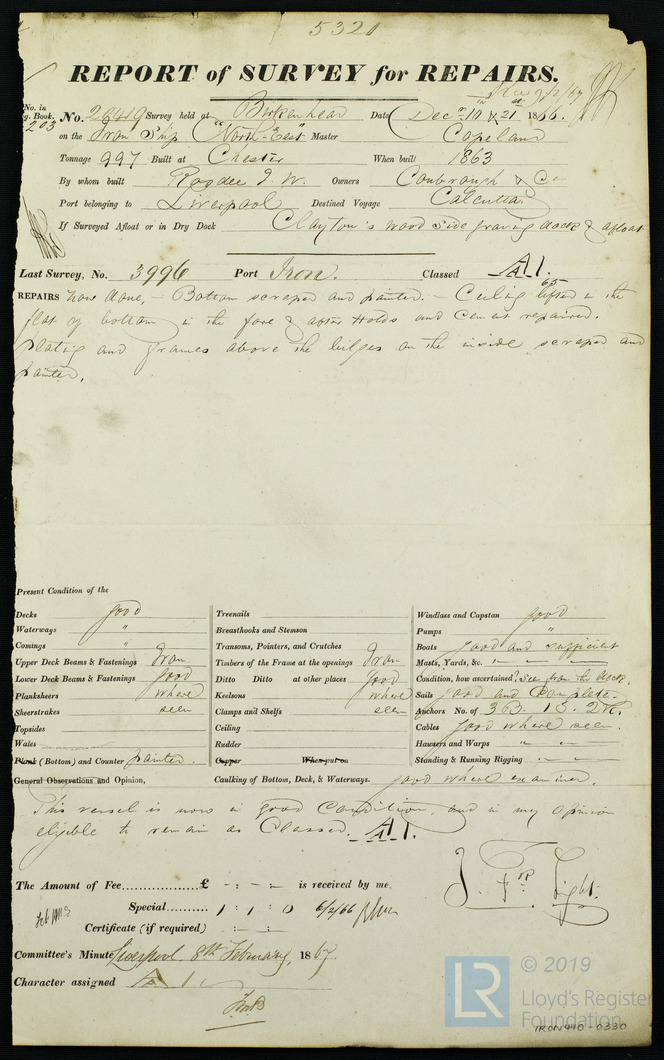 5320
REPORT of SURVEY for REPAIRS.
No. in Book. 203 No. 26419 Survey held at Birkenhead Date Decr 10 & 21 1866.
on the Iron Ship "North-East" Master Copeland
Tonnage 997 Built at Chester When built 1863
By whom built Owners Coubrough & Co
Port belonging to Liverpool Destined Voyage Calcutta
If Surveyed Afloat or in Dry Dock Clayton's wood side graving dock & afloat
Last Survey, No. 3996 Port Iron. Classed A1.
65
REPAIRS have done, - Bottom scraped and painted. - Ceiling lifted in the
flat of bottom in the fore & after Holds and Cement repaired.
plating and frames above the bilges on the inside scraped and
painted.
Present Condition of the
Decks good
Waterways "
Comings "
Upper Deck Beams & Fastenings Iron
Lower Deck Beams & Fastenings good
Planksheers where
Sheerstrakes seen
Topsides
Wales
Plank (Bottom) and Counter painted.
Treenails
Breasthooks and Stemson
Transoms, Pointers, and Crutches
Timbers of the Frame at the openings Iron
Ditto Ditto at other places good
Keelsons where
Clamps and Shelfs seen
Ceiling
Rudder
Copper When put on
Windlass and Capstan good
Pumps "
Boats good and sufficient
Masts, Yards, &c. " - " - "
Condition, how ascertained? Seen from the deck.
Sails good and Complete.
Anchors No. of 3B. 1S. 2K.
Cables good where seen.
Hawsers and Warps " "
Standing & Running Rigging
General Observations and Opinion, Caulking of Bottom, Deck, & Waterways. good where examined.
This vessel is now in good Condition, and in my opinion
eligible to remain as Classed. A1.
J. Fr. Light.
The Amount of Fee............£ - : - : - is received by me.
Special.......... 1 , 1 , 0 6/2/66
Certificate (if required) - : -
Committee's Minute Liverpool 8th February, 1867.
Character assigned A 1
© 2019
LR
Lloyd's Register
Foundation
IRON440-0330